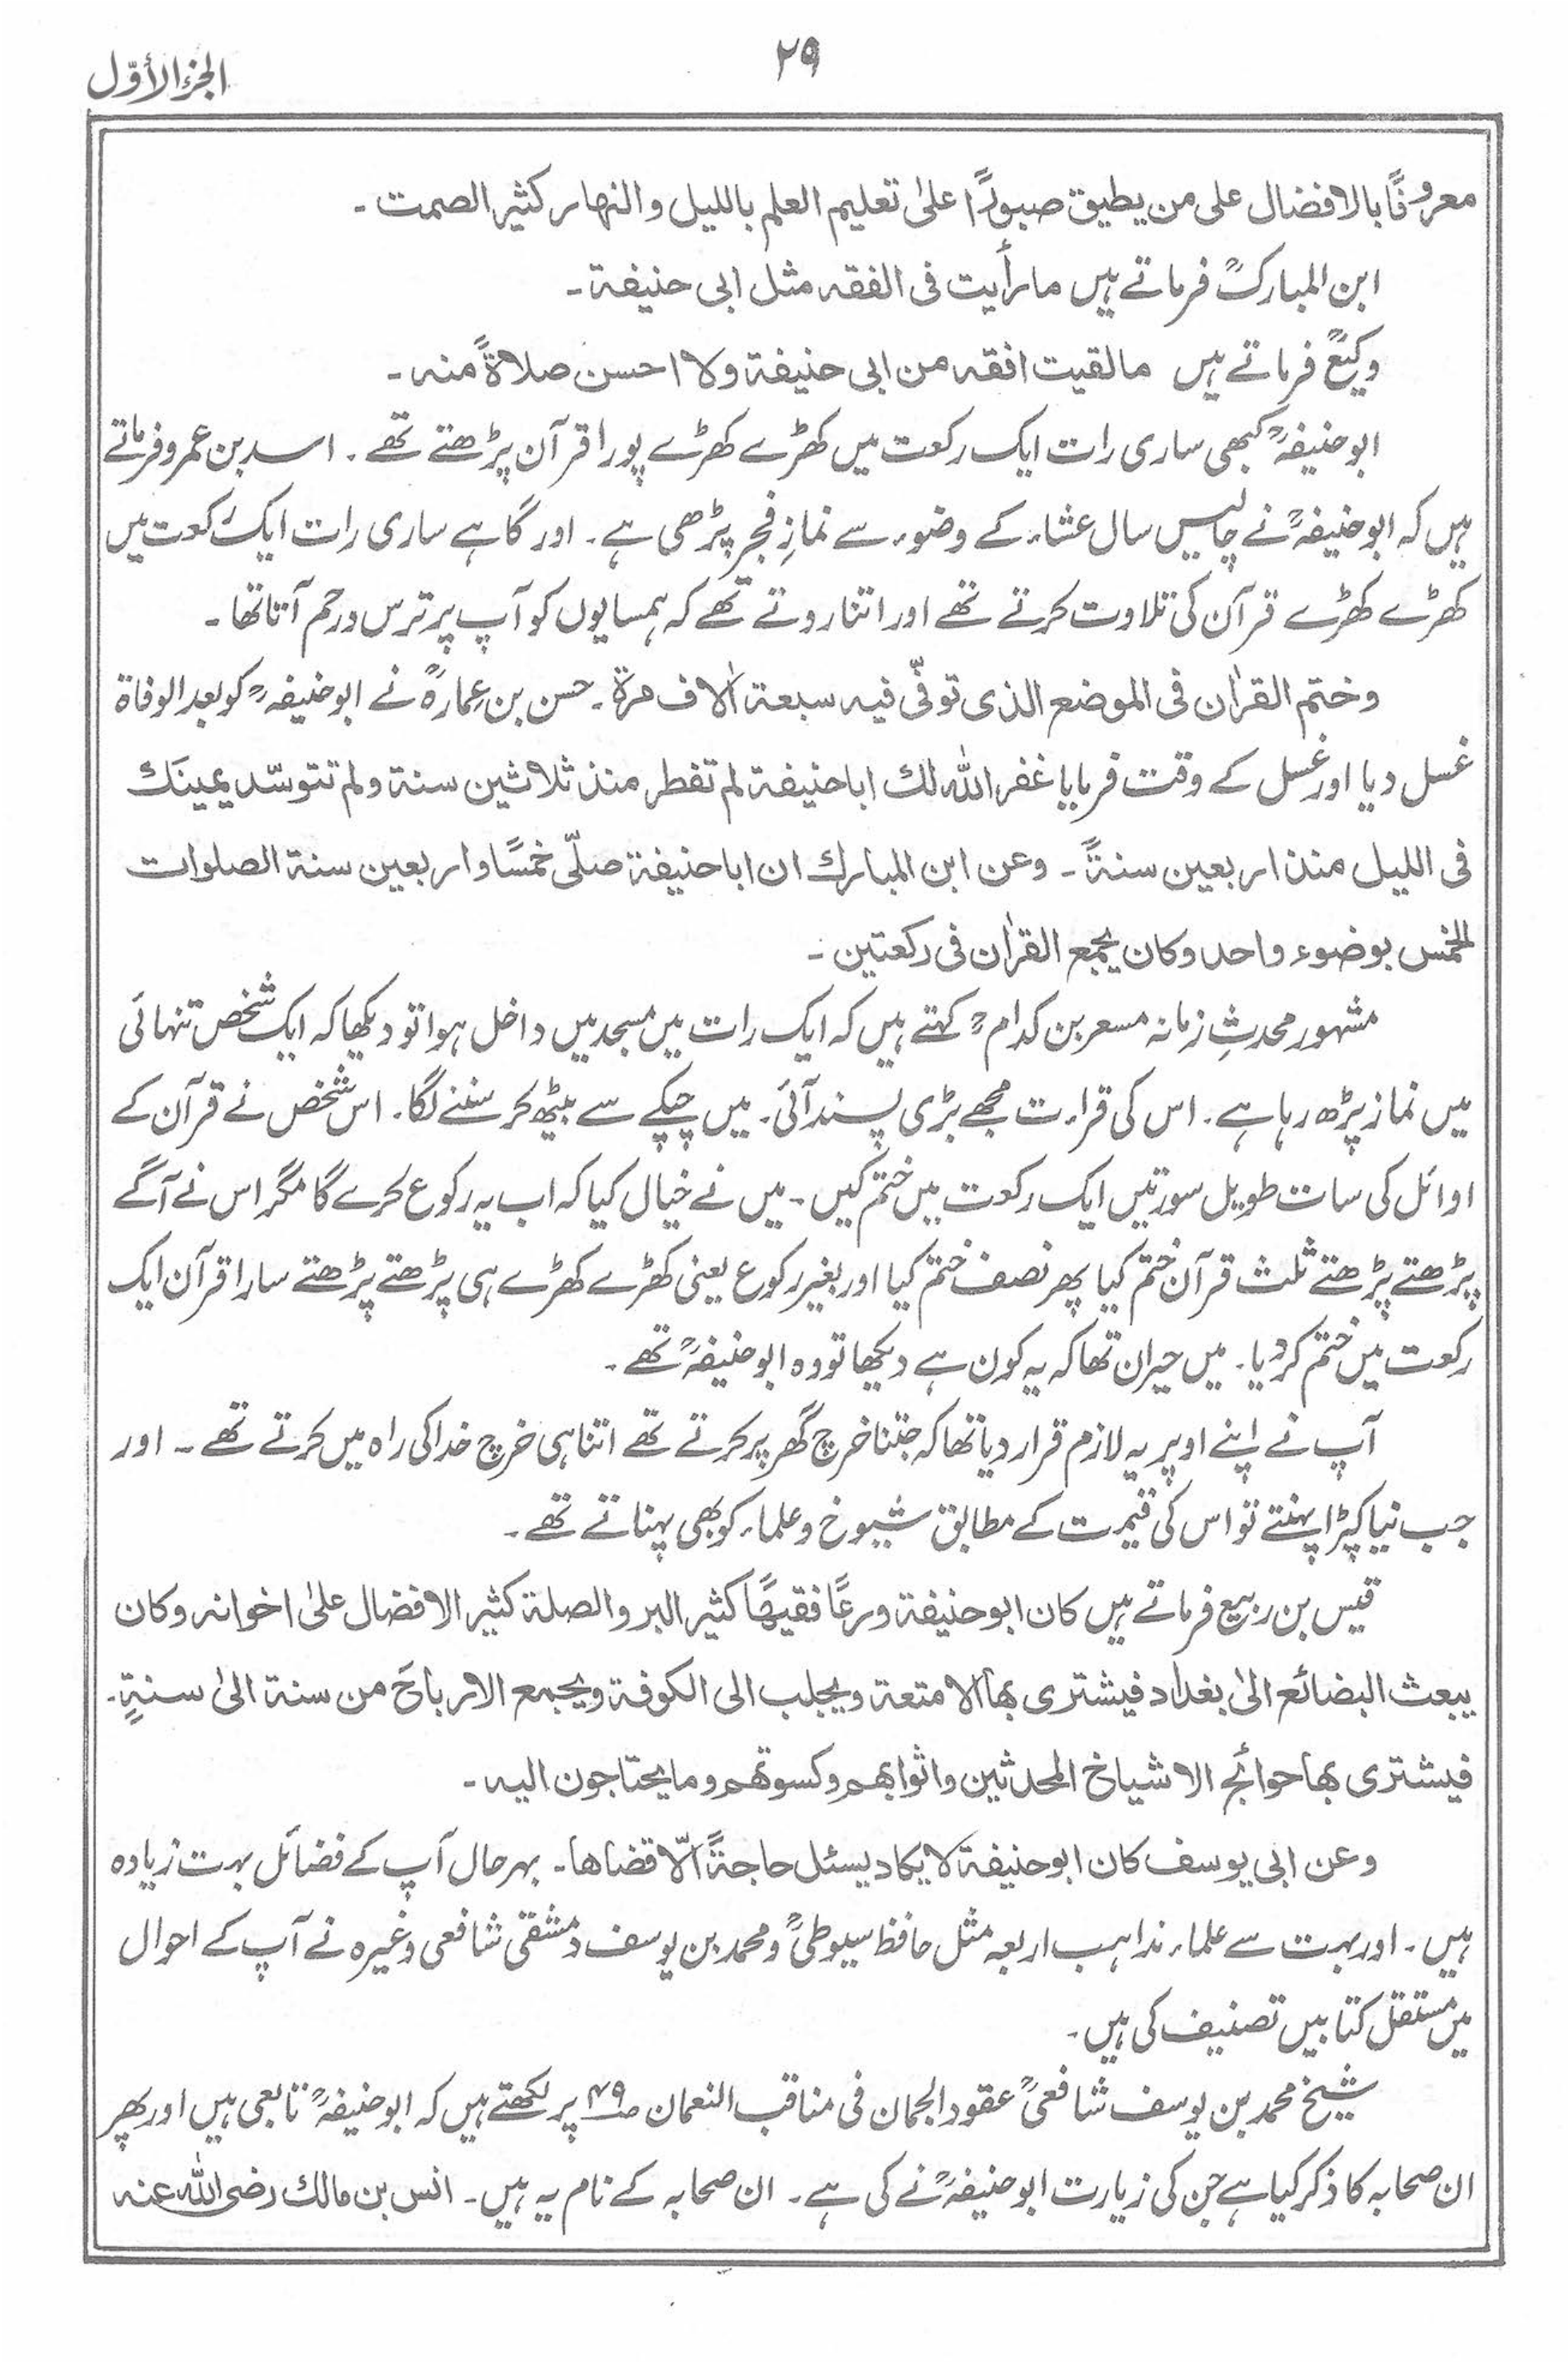 ۲۹
الجزء الأوّل
معروفًا بالافضال على من يطيق صبورًا علىٰ تعليم العلم بالليل والنهار كثير الصمت۔
ابن المبارکؒ فرماتے ہیں مارأيت فى الفقه مثل ابى حنيفة۔
وکیعؒ فرماتے ہیں مالقيت افقه من ابى حنيفة ولا احسن صلاةً منه۔
ابوحنیفہؒ کبھی ساری رات ایک رکعت میں کھڑے کھڑے پورا قرآن پڑھتے تھے۔ اسد بن عمرو فرماتے
ہیں کہ ابوحنیفہؒ نے چالیس سال عشاء کے وضوء سے نمازِ فجر پڑھی ہے۔ اور گاہے ساری رات ایک رکعت میں
کھڑے کھڑے قرآن کی تلاوت کرتے تھے اور اتنا روتے تھے کہ ہمسایوں کو آپ پر ترس و رحم آتا تھا۔
وختم القرٰان فى الموضع الذى توفّى فيه سبعة اٰلاف مرة۔ حسن بن عِمارہؒ نے ابوحنیفہؒ کو بعد الوفاة
غسل دیا اور غسل کے وقت فرمایا غفر الله لك اباحنيفة لم تفطر منذ ثلاثين سنة ولم تتوسّد يمينَك
فى الليل منذ اربعين سنةً۔ وعن ابن المبارك ان اباحنيفة صلّى خمسًا واربعين سنة الصلوات
الخمس بوضوء واحد وكان يجمع القرٰان فى ركعتين۔
مشہور محدثِ زمانہ مسعر بن کدامؒ کہتے ہیں کہ ایک رات میں مسجد میں داخل ہوا تو دیکھا کہ ایک شخص تنہائی
میں نماز پڑھ رہا ہے۔ اس کی قراءت مجھے بڑی پسند آئی۔ میں چپکے سے بیٹھ کر سننے لگا۔ اس شخص نے قرآن کے
اوائل کی سات طویل سورتیں ایک رکعت میں ختم کیں۔ میں نے خیال کیا کہ اب یہ رکوع کرے گا مگر اس نے آگے
پڑھتے پڑھتے ثلث قرآن ختم کیا پھر نصف ختم کیا اور بغیر رکوع یعنی کھڑے کھڑے ہی پڑھتے پڑھتے سارا قرآن ایک
رکعت میں ختم کردیا۔ میں حیران تھا کہ یہ کون ہے دیکھا تو وہ ابوحنیفہؒ تھے۔
آپ نے اپنے اوپر یہ لازم قرار دیا تھا کہ جتنا خرچ گھر پر کرتے تھے اتنا ہی خرچ خدا کی راہ میں کرتے تھے۔ اور
جب نیا کپڑا پہنتے تو اس کی قیمت کے مطابق شیوخ و علماء کو بھی پہناتے تھے۔
قیس بن ربیع فرماتے ہیں كان ابوحنيفة ورعًا فقيهًا كثير البر والصلة كثير الافضال علىٰ اخوانه وكان
يبعث البضائع الىٰ بغداد فيشترى بها الامتعة ويجلب الى الكوفة ويجمع الارباحَ من سنة الىٰ سنةٍ۔
فيشترى بها حوائج الاشياخ المحدثين واثوابهم وكسوتهم وما يحتاجون اليه۔
وعن ابى يوسف كان ابوحنيفة لا يكاد يسئل حاجةً الّا قضاها۔ بہرحال آپ کے فضائل بہت زیادہ
ہیں۔ اور بہت سے علماء مذاہب اربعہ مثل حافظ سیوطیؒ و محمد بن یوسف دمشقی شافعی وغیرہ نے آپ کے احوال
میں مستقل کتابیں تصنیف کی ہیں۔
شیخ محمد بن یوسف شافعیؒ عقود الجمان فی مناقب النعمان ص۴۹ پر لکھتے ہیں کہ ابوحنیفہؒ تابعی ہیں اور پھر
ان صحابہ کا ذکر کیا ہے جن کی زیارت ابوحنیفہؒ نے کی ہے۔ ان صحابہ کے نام یہ ہیں۔ انس بن مالك رضى الله عنه